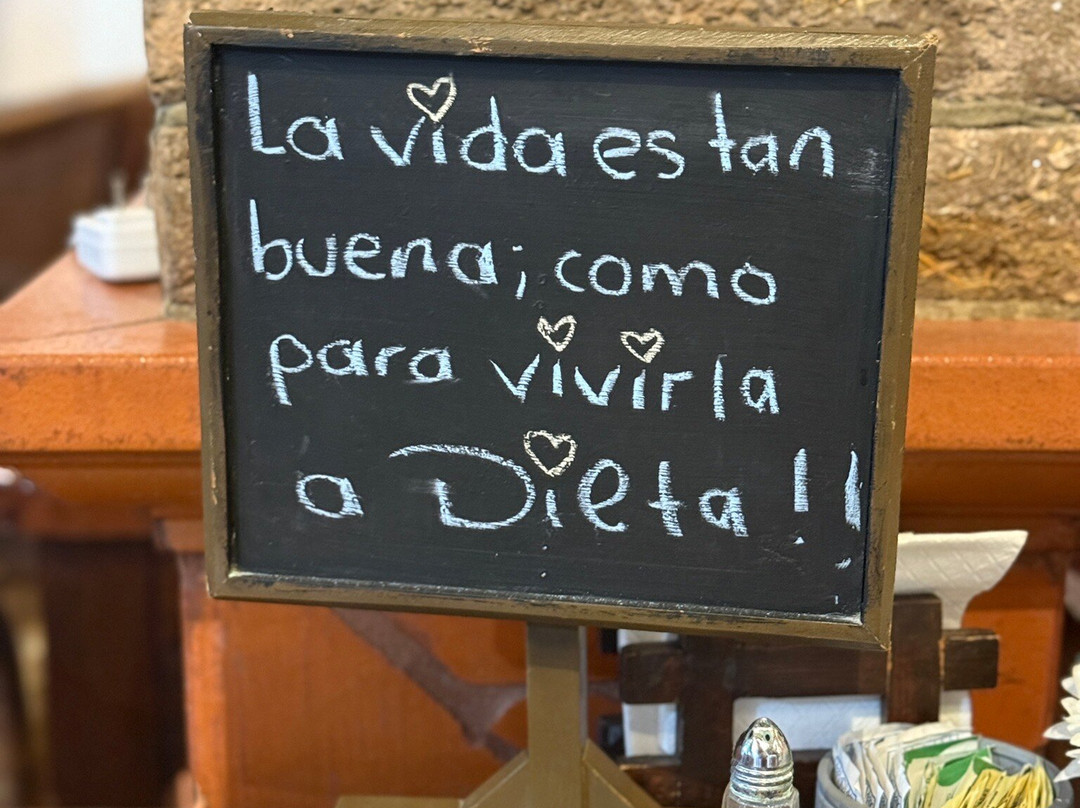 La vida es tan
buena; como
para vivirla
a Dieta!!